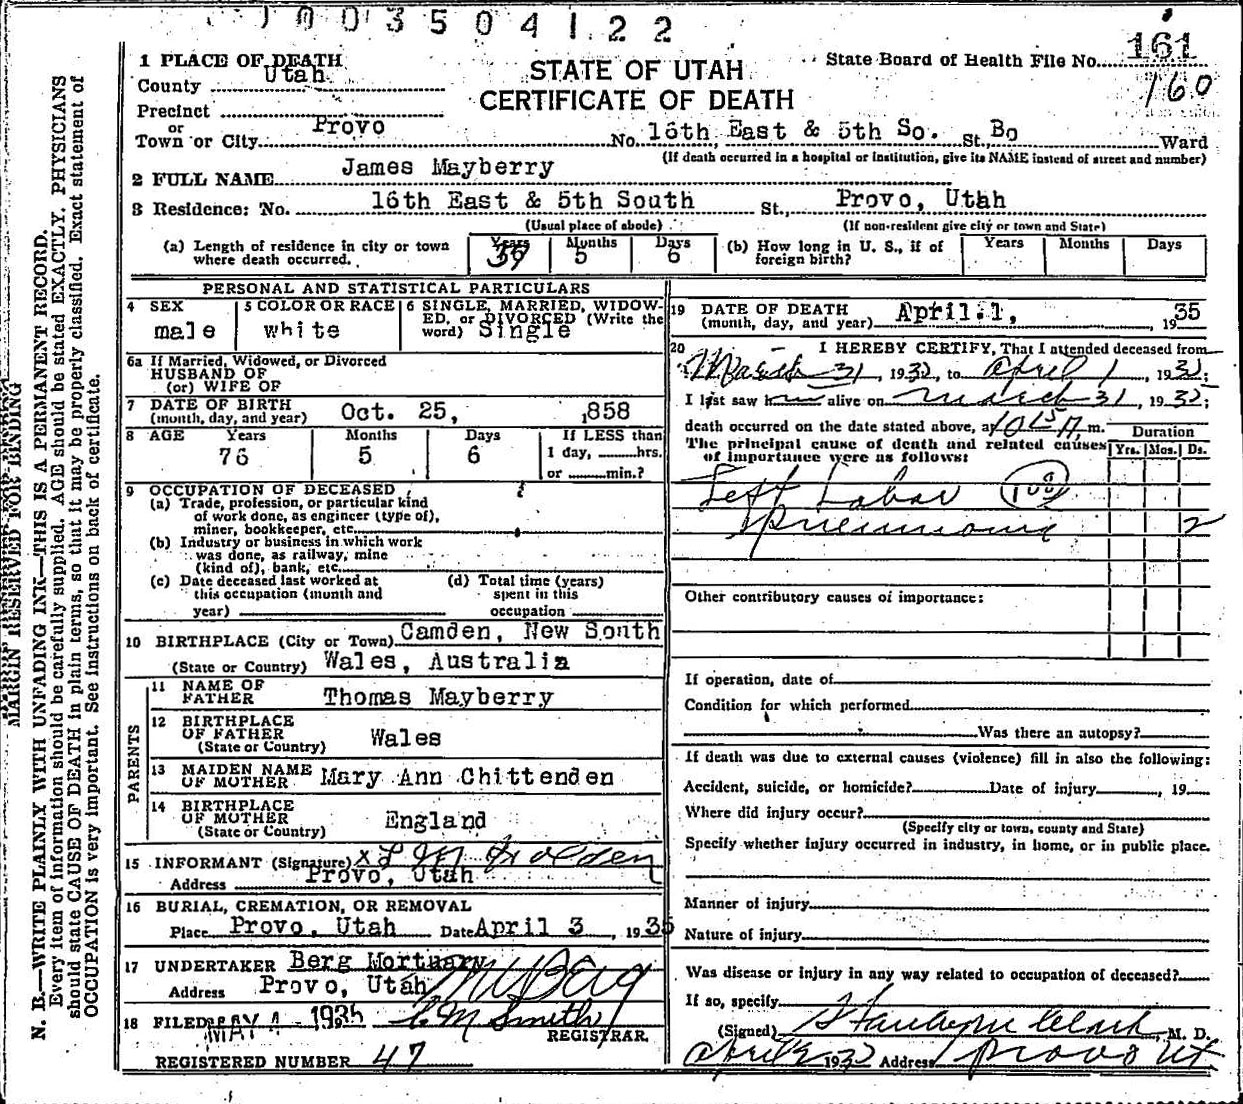 1003504122
161
160
1 PLACE OF DEATH
County Utah
Precinct
or
Town or City Provo
STATE OF UTAH
CERTIFICATE OF DEATH
State Board of Health File No.
No. 16th East & 5th So. St., Bo Ward
(If death occurred in a hospital or institution, give its NAME instead of street and number)
2 FULL NAME James Mayberry
3 Residence: No. 16th East & 5th South St., Provo, Utah
(Usual place of abode) (If non-resident give city or town and State)
(a) Length of residence in city or town where death occurred. Years 39 Months 5 Days 6
(b) How long in U. S., if of foreign birth? Years Months Days
PERSONAL AND STATISTICAL PARTICULARS
4 SEX male
5 COLOR OR RACE white
6 SINGLE, MARRIED, WIDOWED, or DIVORCED (Write the word) Single
6a If Married, Widowed, or Divorced
HUSBAND OF
(or) WIFE OF
7 DATE OF BIRTH (month, day, and year) Oct. 25, 1858
8 AGE Years 76 Months 5 Days 6 If LESS than 1 day, hrs. or min.?
9 OCCUPATION OF DECEASED
(a) Trade, profession, or particular kind
of work done, as engineer (type of),
miner, bookkeeper, etc.
(b) Industry or business in which work
was done, as railway, mine
(kind of), bank, etc.
(c) Date deceased last worked at
this occupation (month and
year)
(d) Total time (years)
spent in this
occupation
10 BIRTHPLACE (City or Town) Camden, New South
(State or Country) Wales, Australia
PARENTS
11 NAME OF FATHER Thomas Mayberry
12 BIRTHPLACE OF FATHER (State or Country) Wales
13 MAIDEN NAME OF MOTHER Mary Ann Chittenden
14 BIRTHPLACE OF MOTHER (State or Country) England
15 INFORMANT (Signature) x L M Holden
Address Provo, Utah
16 BURIAL, CREMATION, OR REMOVAL
Place Provo, Utah Date April 3, 1935
17 UNDERTAKER Berg Mortuary
Address Provo, Utah
18 FILED MAY 4 - 1935 C M Smith REGISTRAR.
REGISTERED NUMBER 47
19 DATE OF DEATH (month, day, and year) April 1, 1935
20 I HEREBY CERTIFY, That I attended deceased from
March 31, 1935, to April 1, 1935;
I last saw him alive on March 31, 1935;
death occurred on the date stated above, at 1015A m.
The principal cause of death and related causes
of importance were as follows:
Duration
Yrs. Mos. Ds.
Left Lobar 108
Pneumonia 2
Other contributory causes of importance:
If operation, date of
Condition for which performed
Was there an autopsy?
If death was due to external causes (violence) fill in also the following:
Accident, suicide, or homicide? Date of injury , 19
Where did injury occur?
(Specify city or town, county and State)
Specify whether injury occurred in industry, in home, or in public place.
Manner of injury
Nature of injury
Was disease or injury in any way related to occupation of deceased?
If so, specify
(Signed) Clark, M. D.
April 2 1935 Address Provo Ut
MARGIN RESERVED FOR BINDING
N. B.—WRITE PLAINLY WITH UNFADING INK—THIS IS A PERMANENT RECORD.
Every item of information should be carefully supplied. AGE should be stated EXACTLY. PHYSICIANS
should state CAUSE OF DEATH in plain terms, so that it may be properly classified. Exact statement of
OCCUPATION is very important. See instructions on back of certificate.